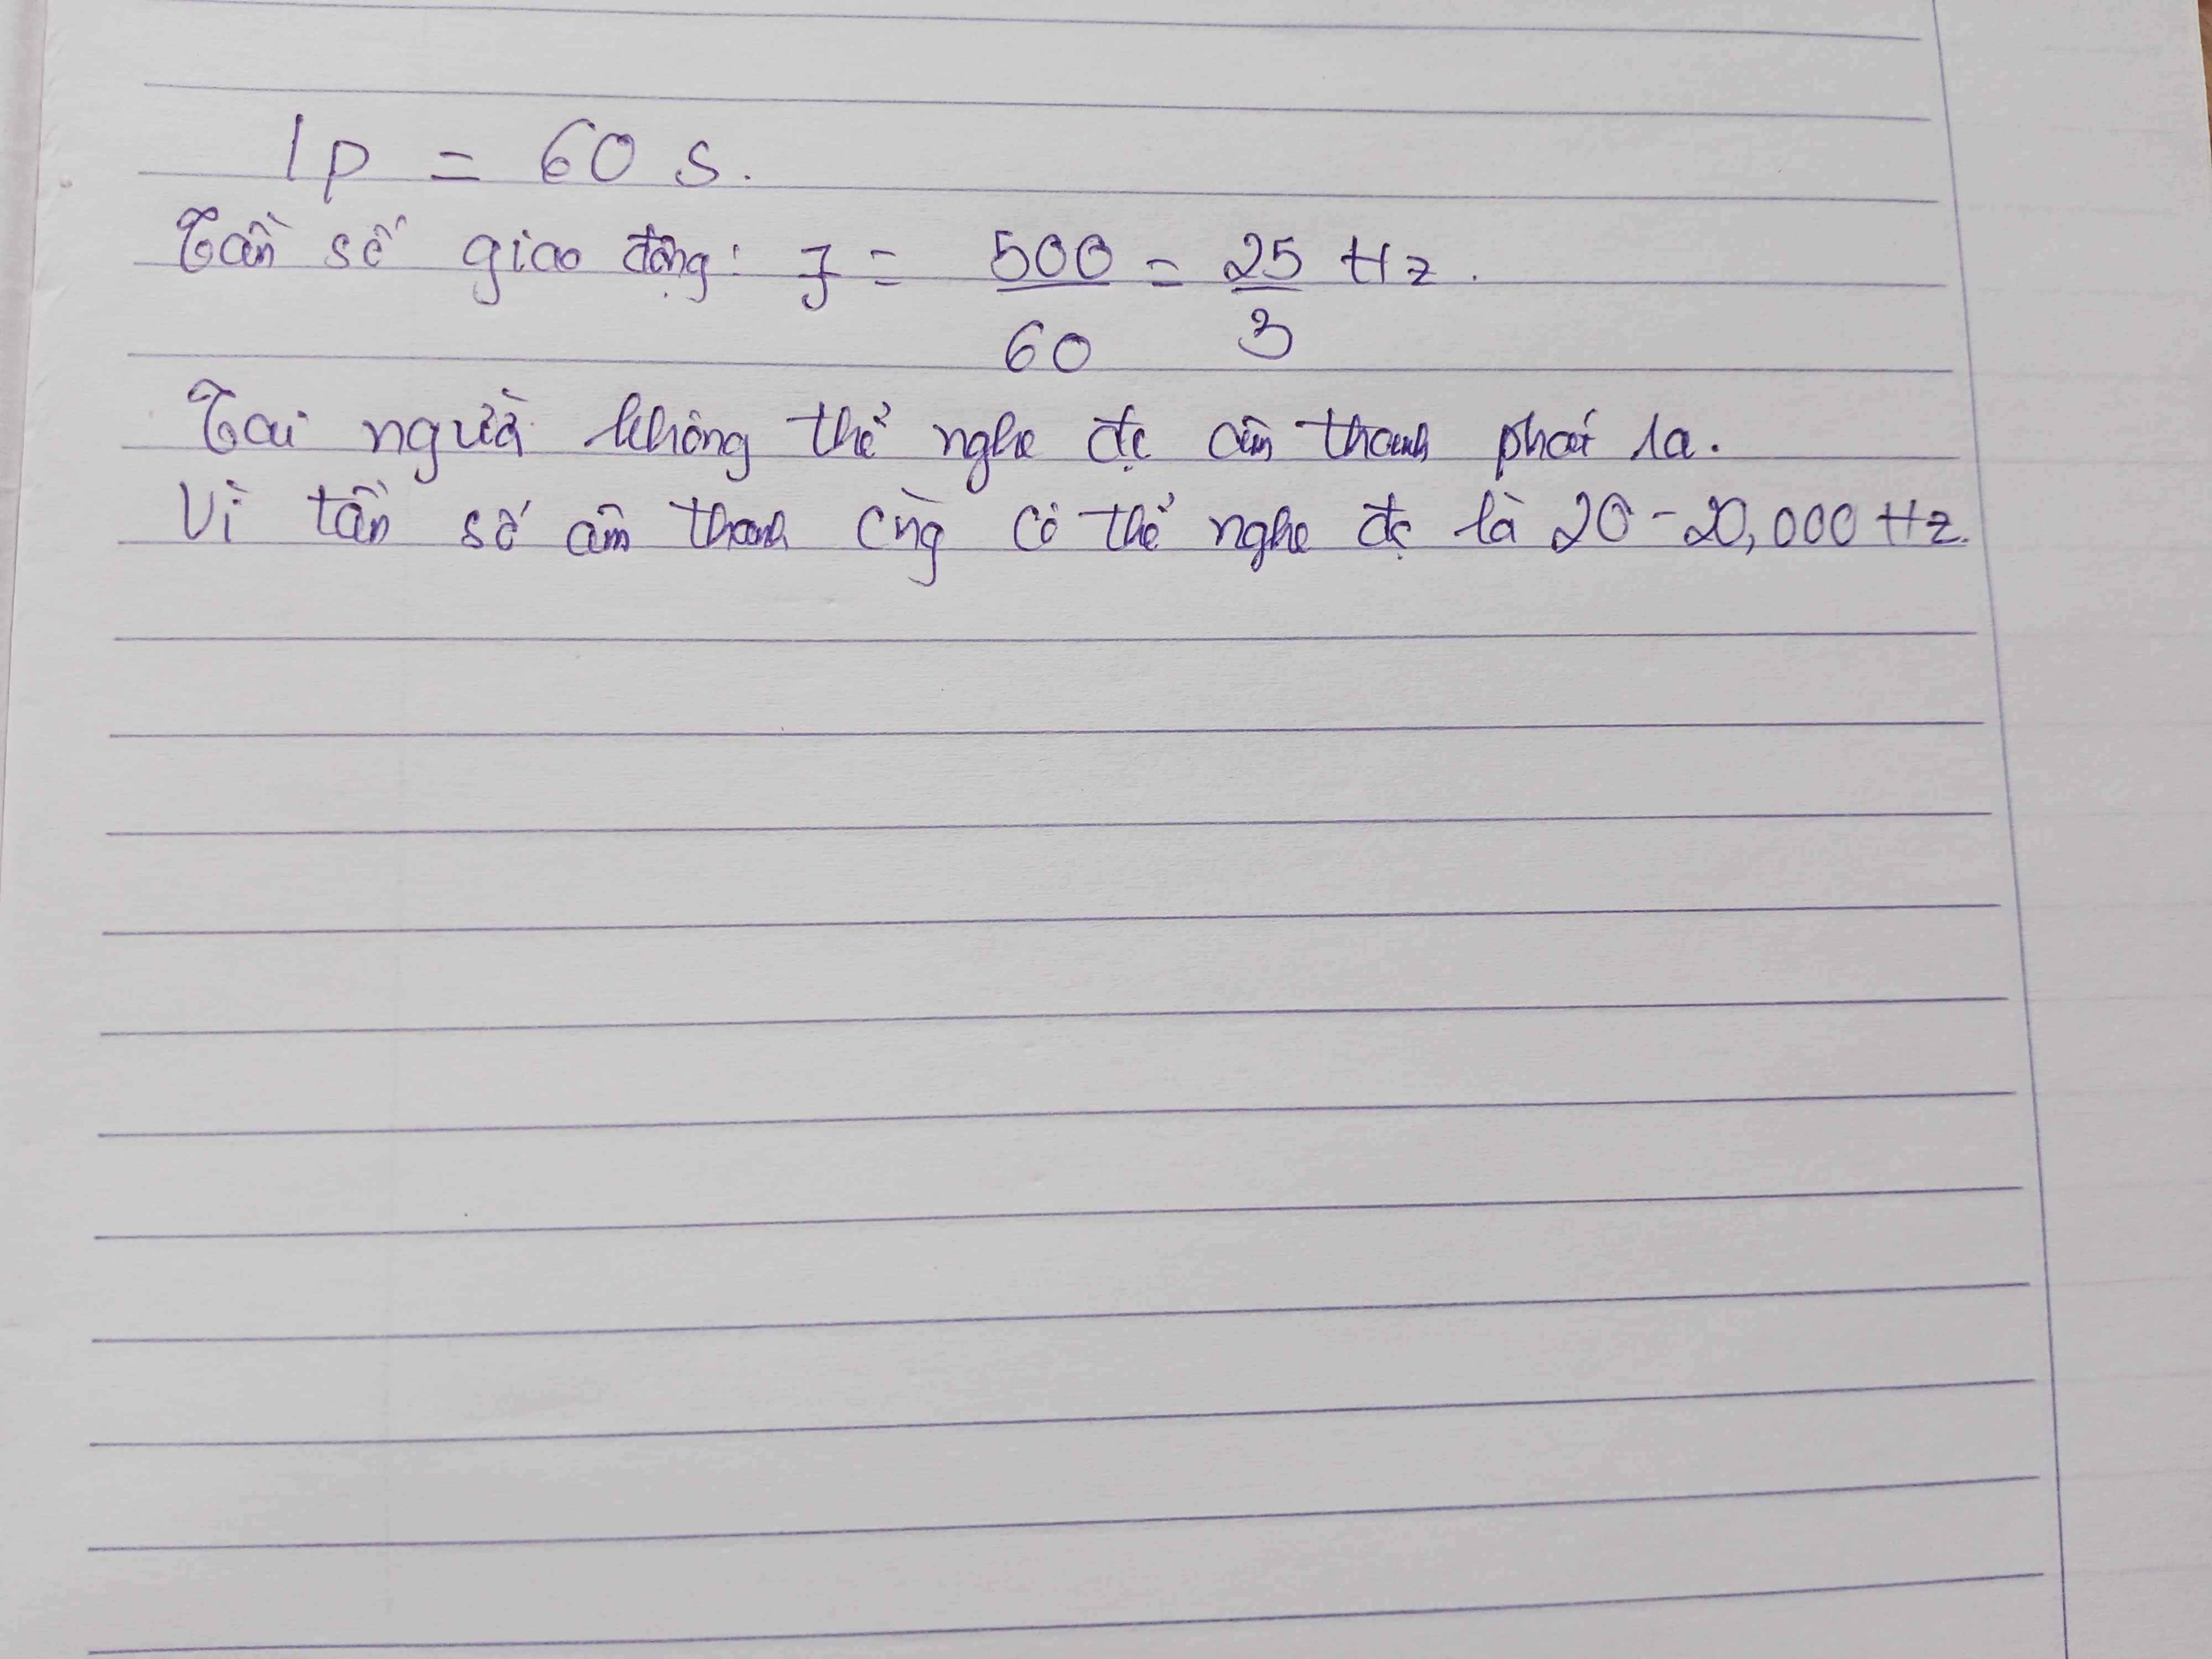 1p = 60 s.
Tần số giao động: f = 500/60 = 25/3 Hz.
Tai người không thể nghe đc âm thanh phát ra.
Vì tần số âm thanh cng có thể nghe đc là 20-20,000 Hz.